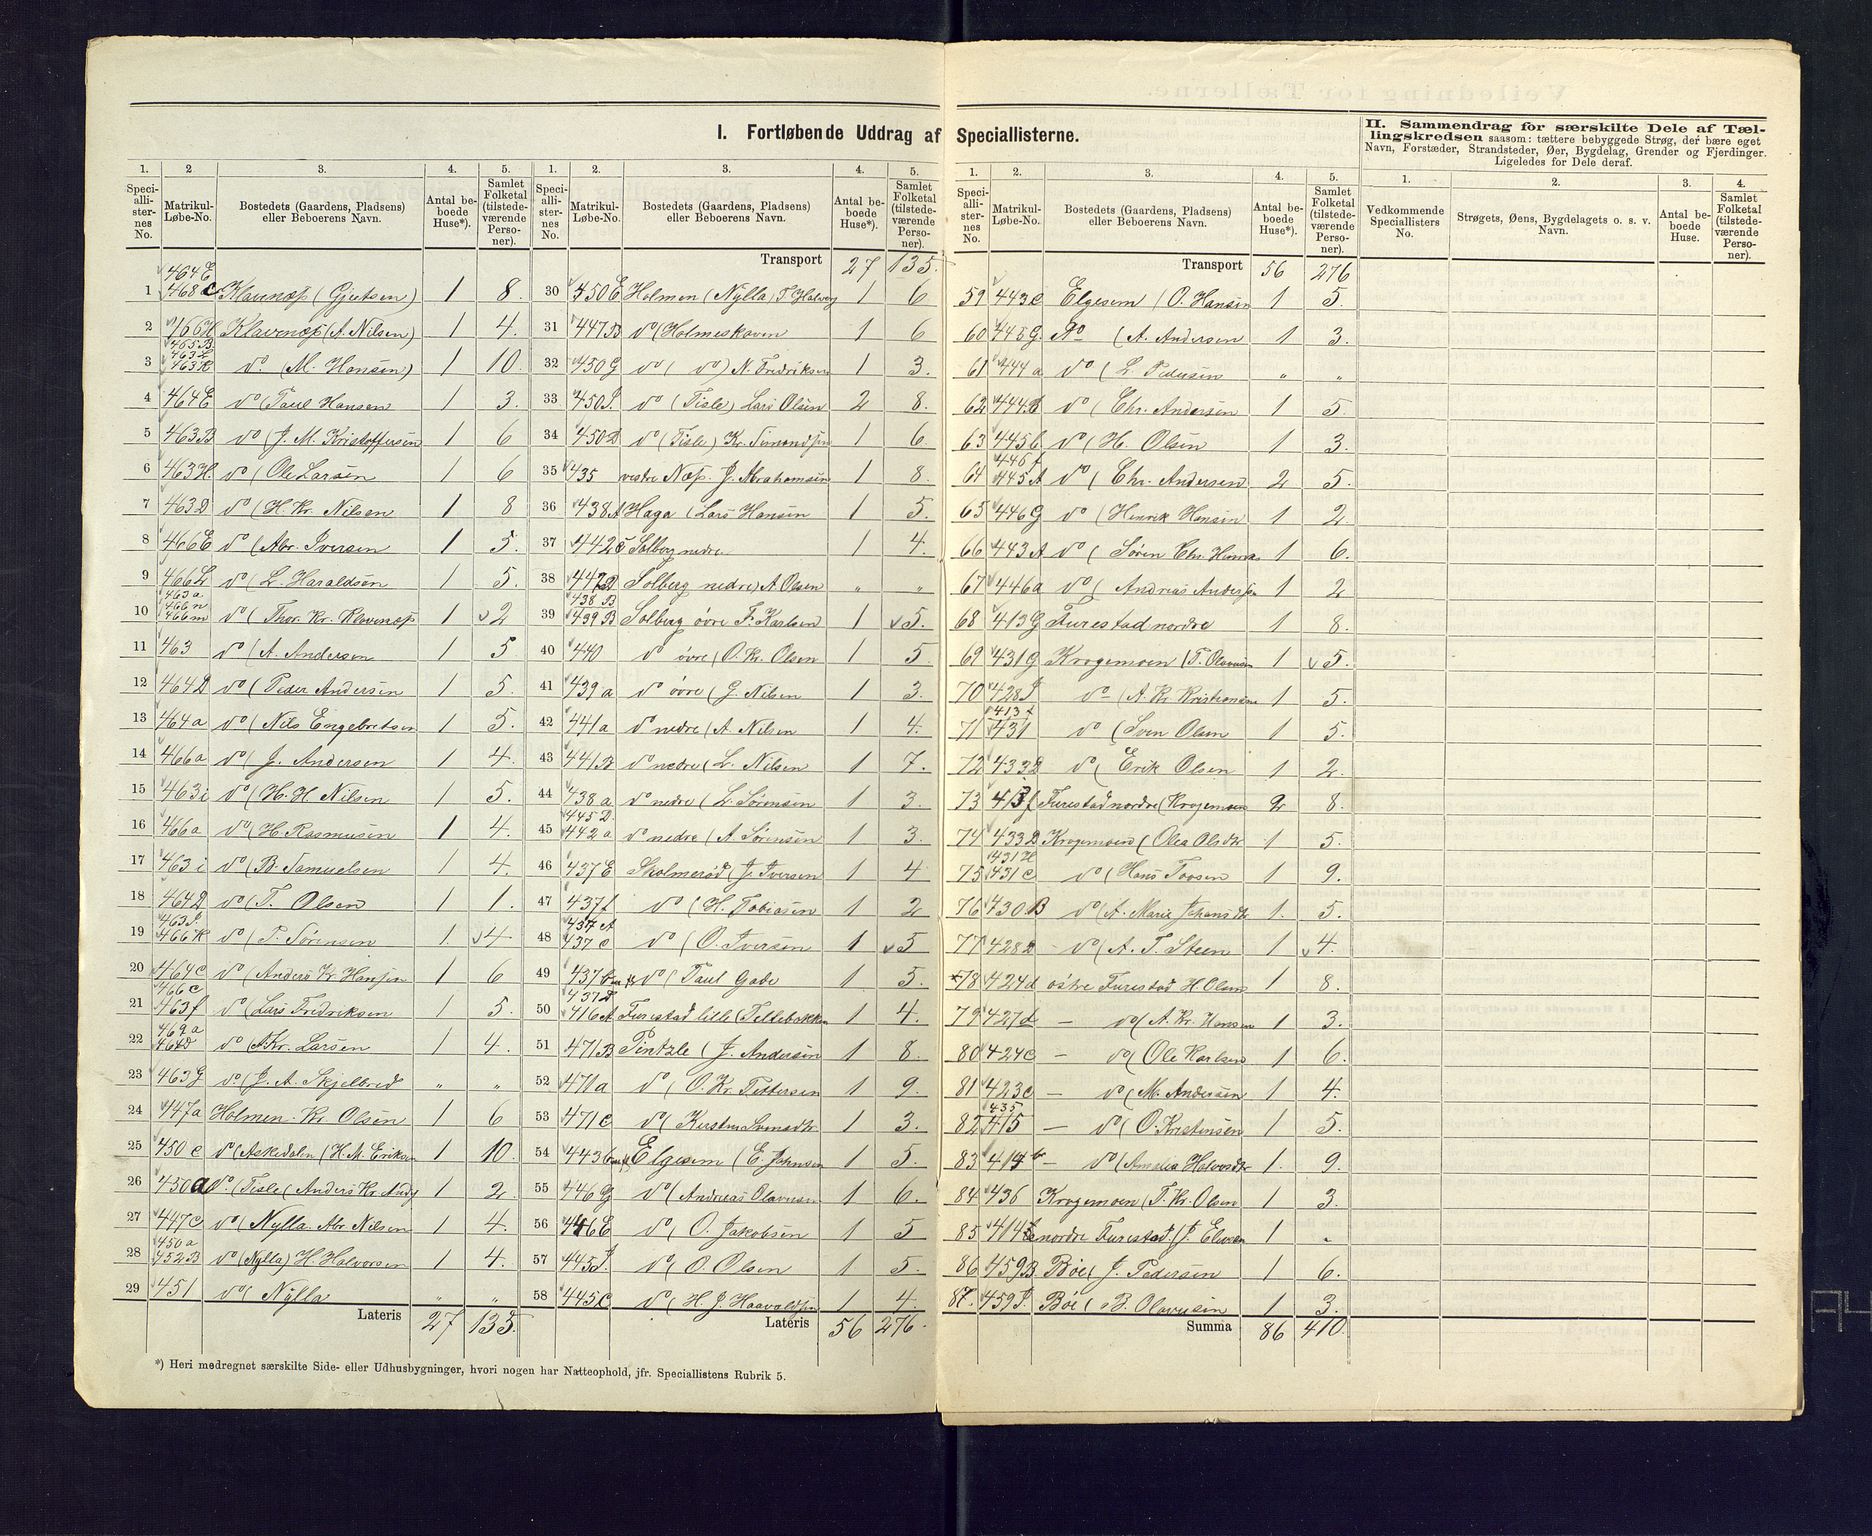 I. Fortløbende Uddrag af Speciallisterne.
II. Sammendrag for særskilte Dele af Tællingskredsen saasom: tættere bebyggede Strøg, der bære eget
Navn, Forstæder, Strandsteder, Øer, Bygdelag, Grender og Fjerdinger.
Ligeledes for Dele deraf.
1. 2 3. 4. 5.
Speciallisternes No. Matrikul-Løbe-No. Bostedets (Gaardens, Pladsens) eller Beboerens Navn. Antal beboede Huse*). Samlet Folketal (tilstedeværende Personer).
464 E
1 468 c Klavnæs (Gjertsen) 1 8.
2 466 H Klavenæs (A. Nilsen) 1 4.
465 B
463 L
3 463 K do. (M. Hansen) 1 10.
4 464 E do (Paul Hansen 1 3.
5 463 B do (J. M. Kristoffersen 1 6
6 463 H. do (Ole Larsen 1 6
7 463 D do (H. Kr. Nilsen 1 8
8 466 E do (Abr. Iversen 1 5.
9 466 L do (L. Haraldsen 1 5.
463 a
466 n
10 466 m do (Thor. Kr. Klavenæs 1 2
11 463 do (A. Andersen 1 5
12 464 D do (Peder Andersen 1 5.
13 464 a do (Nils Engebretsen 1 5.
14 466 a do (J. Andersen 1 4.
15 463 i do (H. H. Nilsen 1 5.
16 466 a do (H. Rasmusen 1 4.
17 463 i do (B. Samuelsen 1 4.
18 464 D do (T. Olsen 1 1.
463 J
19 466 K do (P. Sørensen 1. 4
20 464 c do (Anders Kr. Hansen 1 6
466 c
21 463 f do (Lars Fredriksen 1 5.
469 a
22 464 D do (A. Kr. Larsen 1 4.
23 463 G do. (J. A. Skjelbred " "
24 447 a Holmen. Kr. Olsen 1 6
25 450 c do (Askedalen (H. M. Eriksen 1 10.
26 450 a do (Tisle (Anders Kr. 1 2.
27 447 c do (Nylla. Abr. Nilsen 1 4.
450 a
28 452 B do (Nylla) H. Halvorsen 1 4.
29 451 do (Nylla " "
Lateris 27 135.
*) Heri medregnet særskilte Side- eller Udhusbygninger, hvori nogen har Natteophold, jfr. Speciallistens Rubrik 5.
1. 2. 3. 4. 5.
Speciallisternes No. Matrikul-Løbe-No. Bostedets (Gaardens, Pladsens) eller Beboerens Navn. Antal beboede Huse*). Samlet Folketal (tilstedeværende Personer).
Transport 27 135.
30 450 E Holmen (Nylla) T. Halvors 1 6
31 447 B do (Holmeskoven 1 6
32 450 G do ( do) N. Fredriksen 1 3.
33 450 J. do (Tisle) Lars Olsen 2 8.
34 450 D do (Tisle) Kr. Simondsen 1 6.
35 435 vestre Næs. J. Abrahamsen 1 8.
36 438 A Haga (Lars Hansen 1 5.
37 442 c Solberg nedre 1 4.
38 442 D Solberg nedre) A. Olsen " "
438 B
39 439 B Solberg øvre F. Karlsen 1 5.
40 440 do øvre (O. Kr. Olsen 1 5
41 439 a do øvre (G. Nilsen 1 3.
42 441 a do nedre (A. Nilsen 1 4.
43 441 B do nedre (L. Nilsen 1 7.
44 438 a do nedre (L. Sørensen 1 3.
445 D
45 442 a do nedre (A. Sørensen 1 3.
46 437 E Skolmerød (J. Iversen 1 4
47 437 f do (H. Tobiasen 1 2
437 A
48 437 c do (O. Iversen 1 5
49 437 b do (Paul Gabe 1 5.
437 D
50 416 A Furestad lille (Feltebakken 1 4.
51 471 B Pintzle (J. Andersen 1 8.
52 471 a do (O. Kr. Pettersen 1 9.
53 471 c do (Kirstine Svensdtr 1 3.
54 443 b Elgesem (E. Johnsen 1 5.
55 446 G do (Andreas Olavusen 1 6.
56 446 E do (O. Jakobsen 1 5
57 445 J. do (O. Olsen 1 5.
58 445 c do (H. J. Haavaldsen 1 4.
Lateris 56 276.
1. 2. 3. 4. 5.
Speciallisternes No. Matrikul-Løbe-No. Bostedets (Gaardens, Pladsens) eller Beboerens Navn. Antal beboede Huse*). Samlet Folketal (tilstedeværende Personer).
Transport 56 276
59 443 c Elgesem (O. Hansen 1 5.
60 445 G. Do (A. Andersen 1 3.
61 444 a do (L. Pedersen " "
62 444 B do (Chr. Andersen 1 5.
63 445 b do (H. Olsen 1 3.
446 f
64 445 A do (Chr. Andersen 2 5.
65 446 G do (Henrik Hansen 1 2.
66 443 A do (Søren Chr. 1 6.
67 446 a do (Andreas Andersen 1 2
68 413 G Furestad nordre 1 8.
69 431 G Krogemoen (T. Olavusen 1 5.
70 428 J do (A. Kr. Kristiansen 1 5.
413 f
71 431 do (Sven Olsen 1 5.
72 433 D do (Erik Olsen 1 2.
73 413 f Furestad nordre (Krogemoen 2 8.
74 433 D Krogemoen (Olea Olsdtr 1 5.
431 H
75 431 c do (Hans Torsen 1 9.
76 430 B do (A. Marie Johansdtr 1. 5.
77 428 D do (A. T. Steen 1 4.
78 424 d østre Furestad H. Olsen 1 8.
79 427 d — do (A. Kr. Hansen 1 3.
80 424 c — do (Ole Karlsen 1 6.
81 423 c — do (M. Andersen 1 4.
435
82 415 — do (O. Kristensen 1 5.
83 414 b — do (Amalia Halvorsdtr 1. 9.
84 436 Krogemoen (T. Kr. Olsen 1 3.
85 414 nordre Furestad (J. 1 -
86 459 B. Bøe (J. Pedersen 1 6.
87. 459 J. Bøe (B. Olavusen 1 3.
Summa 86 410.
1. 2. 3. 4.
Vedkommende Speciallisters No. Strøgets, Øens, Bygdelagets o. s. v. Navn. Antal beboede Huse. Samlet Folketal (tilstedeværende Personer).